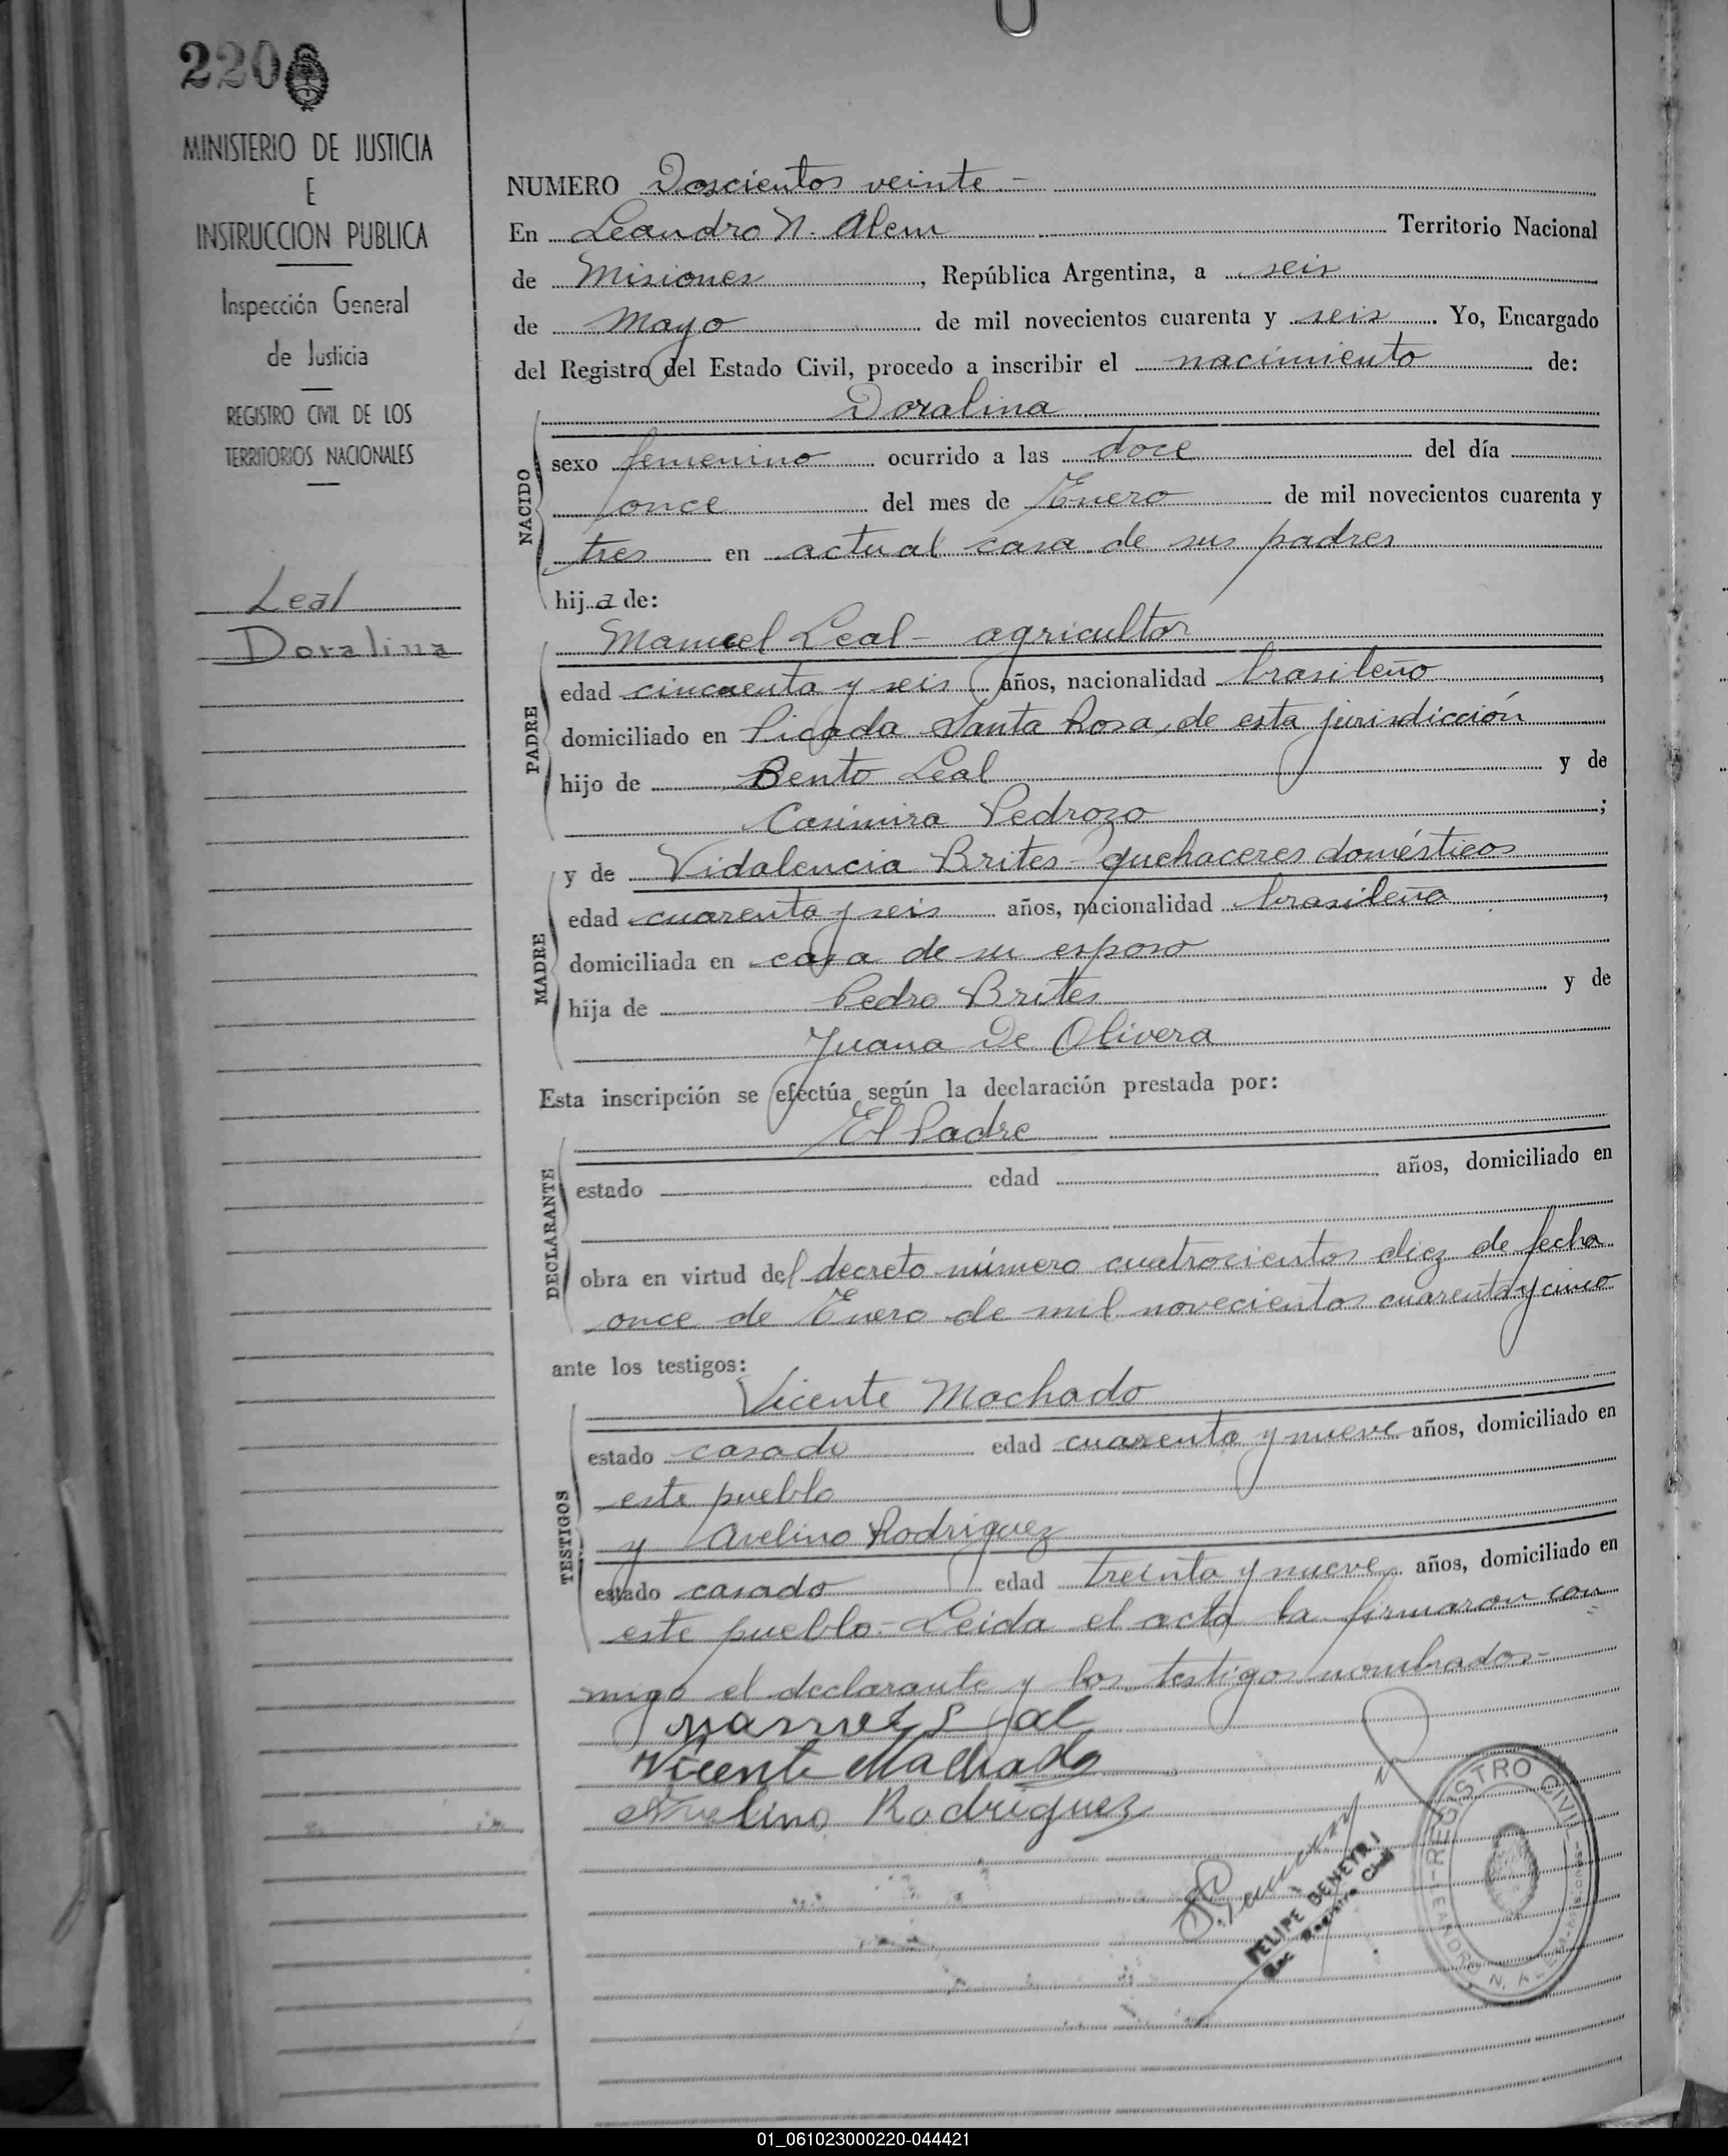 220
MINISTERIO DE JUSTICIA
E
INSTRUCCION PUBLICA
Inspección General
de Justicia
REGISTRO CIVIL DE LOS
TERRITORIOS NACIONALES
Leal
Doralina
NUMERO Doscientos veinte -
En Leandro N. Alem Territorio Nacional
de Misiones, República Argentina, a seis
de Mayo de mil novecientos cuarenta y seis. Yo, Encargado
del Registro del Estado Civil, procedo a inscribir el nacimiento de:
NACIDO
Doralina
sexo femenino ocurrido a las doce del día
once del mes de Enero de mil novecientos cuarenta y
tres en actual casa de sus padres
hija de:
PADRE
Manuel Leal - agricultor
edad cincuenta y seis años, nacionalidad brasileño,
domiciliado en Picada Santa Rosa, de esta jurisdicción
hijo de Bento Leal y de
Casimira Pedrozo;
MADRE
y de Vidalencia Brites - quehaceres domésticos
edad cuarenta y seis años, nacionalidad brasileña,
domiciliada en casa de su esposo
hija de Pedro Brites y de
Juana De Olivera
Esta inscripción se efectúa según la declaración prestada por:
DECLARANTE
El Padre
estado edad años, domiciliado en
obra en virtud del decreto número cuatrocientos diez de fecha
once de Enero de mil novecientos cuarenta y cinco
ante los testigos:
TESTIGOS
Vicente Machado
estado casado edad cuarenta y nueve años, domiciliado en
este pueblo
y Avelino Rodriguez
estado casado edad treinta y nueve años, domiciliado en
este pueblo.- Leida el acta la firmaron con
migo el declarante y los testigos nombrados-
Manuel Leal
Vicente Machado
Avelino Rodriguez
FELIPE BENEYRI
Enc. Registro Civil
REGISTRO CIVIL
LEANDRO N. ALEM - MISIONES
01_061023000220-044421